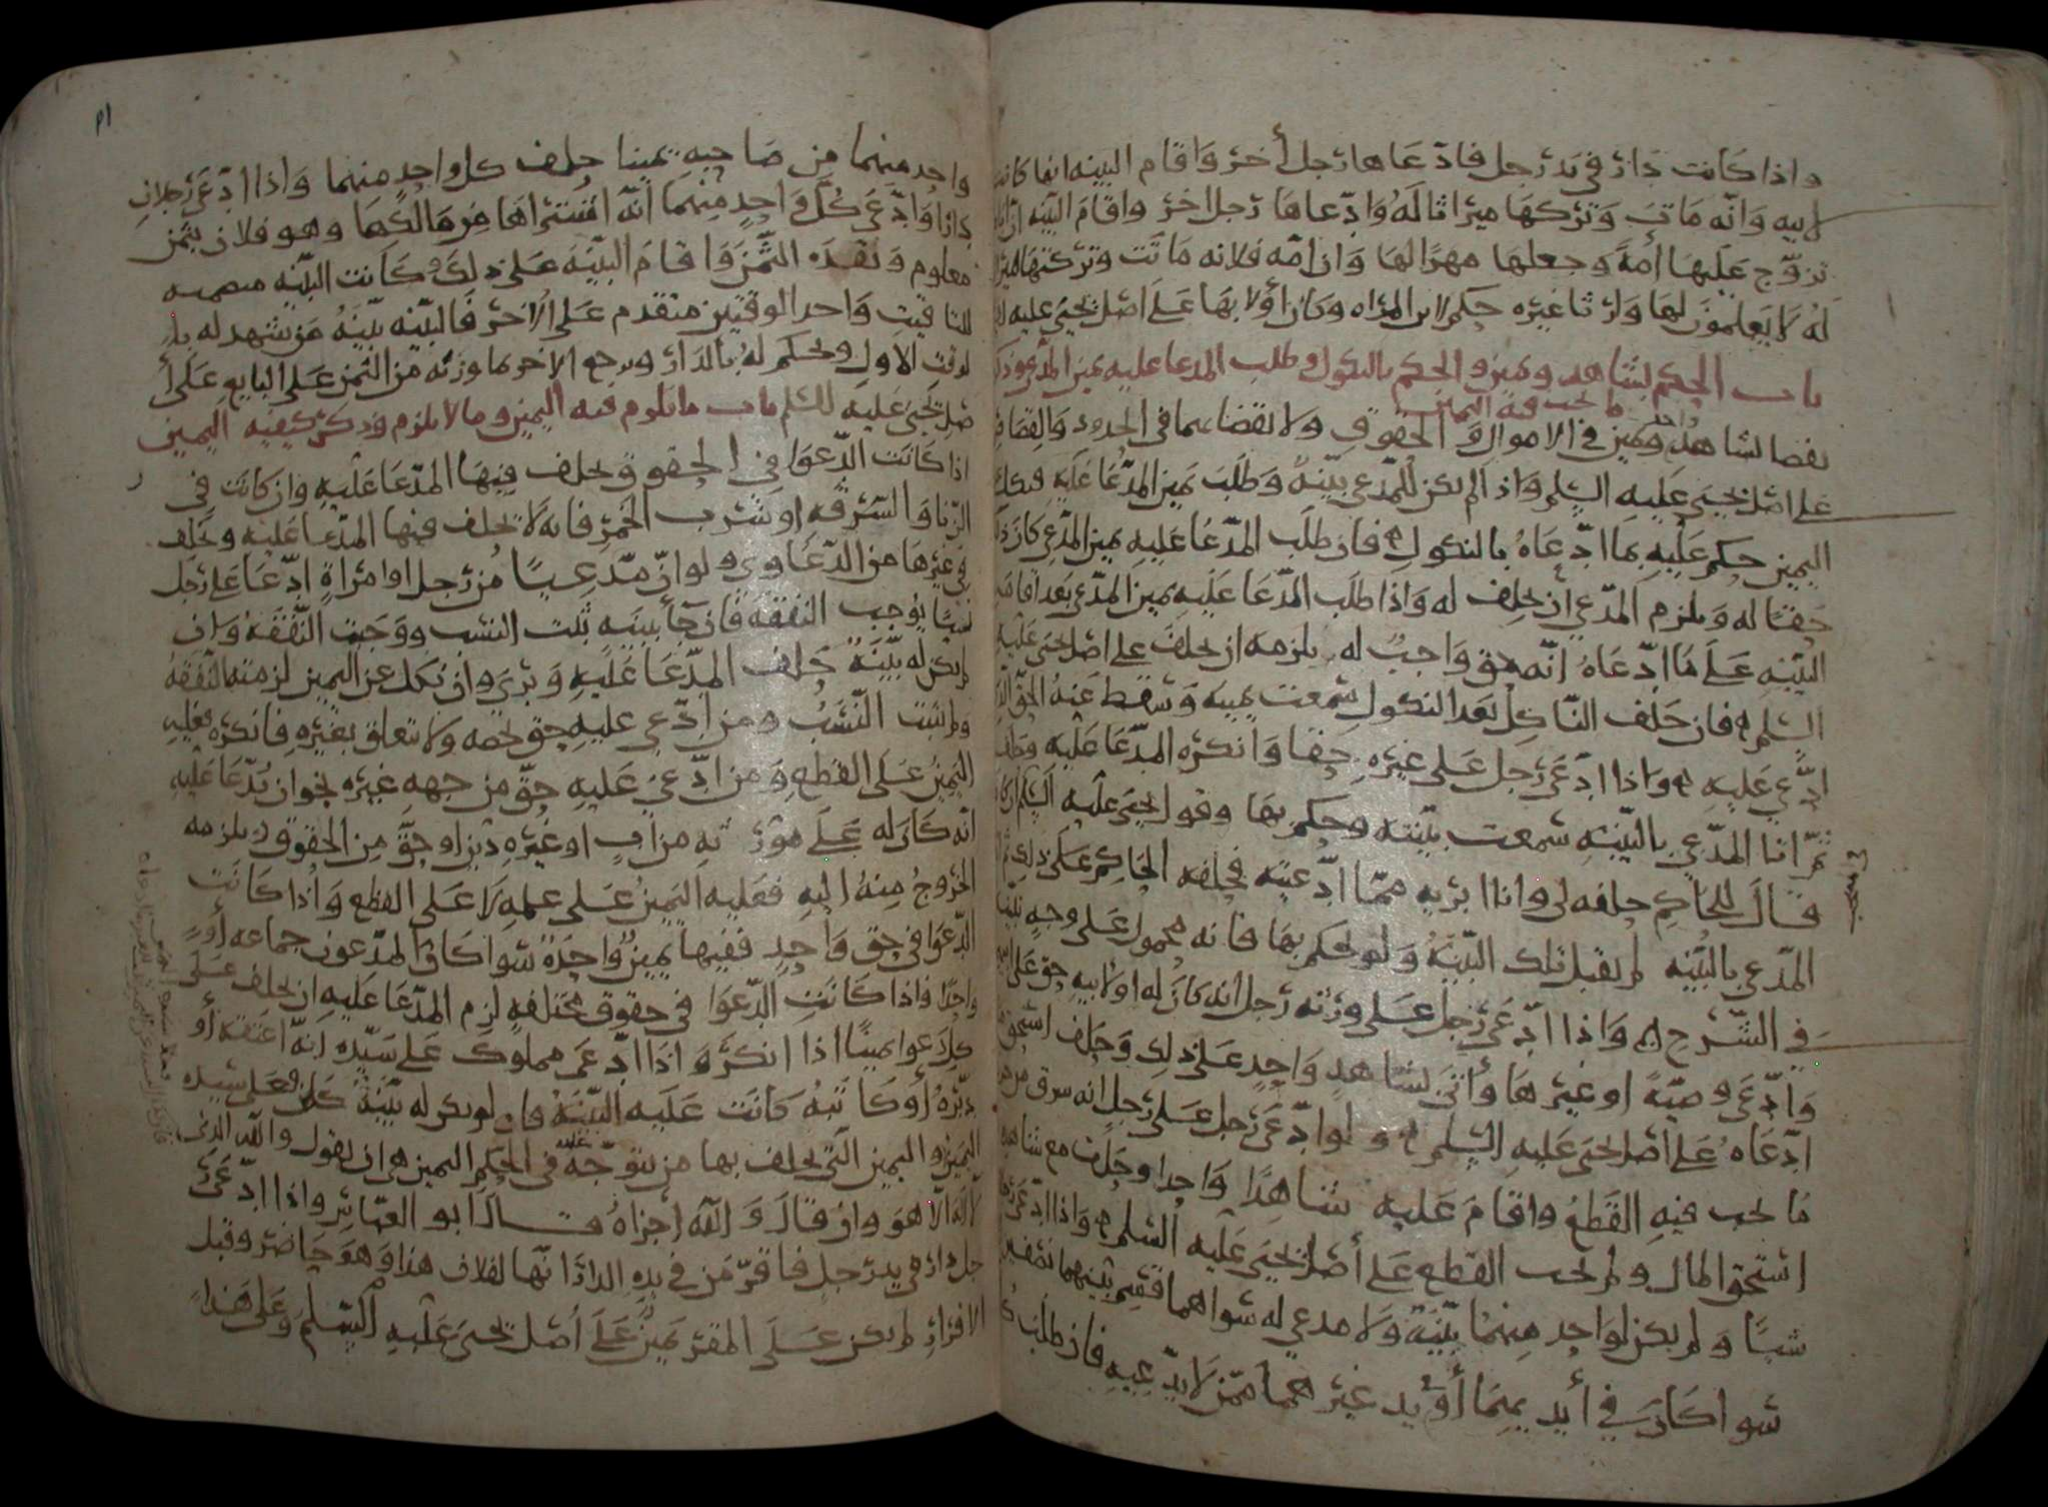 واذا كانت دار في يد رجل فادّعاها رجل أخر وأقام البينه انها كانت
لابيه وانّه مات وتركها ميراثا له وادّعاها رجل اخر واقام البيّنه انّ اباه
تزوّج عليها أمه وجعلها مهرًا لها وان امّه فلانه ماتت وتركتها ميراثا
له لا يعلمون لها وارثا غيره حكم لابن المراه وكان أولا بها على اصل يحيى عليه
باب الحكم بشاهد ويمين والحكم بالنكول وطلب المدعا عليه يمين المدّعي وذكر
ما تجب فيه اليمين
يقضا بشاهد واحد ويمين في الاموال والحقوق ولا يقضا بهما في الحدود والقصاص
على اصل يحيى عليه السلم واذا لم يكن للمدّعي بيّنة وطلب يمين المدّعا عليه فنكل
اليمين حكم عليه بما ادّعاه بالنكول فان طلب المدّعا عليه يمين المدّعي كان ذلك
حقا له ويلزم المدّعي أن يحلف له واذا طلب المدّعا عليه يمين المدّعي بعد اقامه
البيّنه على ما ادّعاه انّه حق واجب له يلزمه ان يحلف على اصل يحيى عليه
السلم فان حلف الناكل بعد النكول سمعت يمينه وسقط عنه الحق
ادّعي عليه واذا ادّعى رجل على غيره حقا وانكره المدّعا عليه
ثمّ اتا المدّعي بالبيّنه سمعت بيّنته وحكم بها وقول يحيى عليه السلم
قال للحاكم حلفه لي وانا ابريه ممّا ادّعيته فحلفه الحاكم على ذلك
المدّعي بالبيّنه لم يقبل تلك البيّنة ولم يحكم بها فانه محمول على وجه
في الشرح واذا ادّعى رجل على ورثه رجل انه كان له او لابيه حق على
وادّعى وصيّة او غيرها وأتى بشاهد واحد على ذلك وحلف استحق
ادّعاه على اصل يحيى عليه السلم ولو ادّعى رجل على رجل انه سرق
ما يجب فيه القطع واقام عليه شاهدًا واحدا وحلف مع شاهده
استحق المال ولم يجب القطع على أصل يحيى عليه السلم واذا ادّعى
شيئًا ولم يكن لواحد منهما بيّنة ولا مدعي له سواهما قسم بينهما نصفين
سوا كان في أيديهما أو يد غيرهما ممّن لا يدّعيه فان طلب
واحد منهما من صاحبه يمينا حلف كل واحد منهما واذا ادّعى رجلان
دارًا وادّعى كل واحد منهما انّه اشتراها من مالكها وهو فلان بثمن
معلوم ونقده الثّمن واقام البيّنة على ذلك وكانت البيّنه
للتاقيت واحد الوقتين متقدم على الاخر فالبيّنه بيّنة من يشهد له
لوقت الاول ويحكم له بالدار ويرجع الاخر بما وزنه من الثمن على البايع على أ
صل يحيى عليه السلم باب ما يلزم فيه اليمين وما لا يلزم وذكر كيفيه اليمين
اذا كانت الدّعوا في الحقوق يحلف فيها المدّعا عليه وان كانت في
الزنا والسّرقه او شرب الخمر فانه لا يحلف فيها المدّعا عليه ويحلف
في غيرها من الدّعاوي ولو انّ مدّعيًا من رجل او امراة ادّعا على رجل
نسبًا يوجب النفقة فان جأ ببينه ثبت النسب ووجبت النفقة وان
لم يكن له بيّنة حلف المدّعا عليه وبرى وان نكل عن اليمين لزمته النفقة
ولم يثبت النّسب ومن ادّعي عليه حق يخصه ولا تعلق بغيره فانكره فعليه
اليمين على القطع ومن ادّعي عليه حقّ من جهه غيره نحو ان يدّعا عليه
انّه كان له على مورثه من اب او غيره دين او حقّ من الحقوق يلزمه
الخروج منه اليه فعليه اليمين على علمه لا على القطع واذا كانت
الدّعوا في حق واحد ففيها يمين واحدة سوا كان المدّعون جماعه أو
واحدًا فاذا كانت الدّعوا في حقوق مختلفه لزم المدّعا عليه ان يحلف على
كل دعوا يمينًا اذا انكر واذا ادّعى مملوك على سيّده انّه اعتقه أو
دبّره أو كاتبه كانت عليه البيّنة فان لم يكن له بيّنة كان على سيده
اليمين واليمين الّتي يحلف بها من يتوجّه عليه في الحكم اليمين هي ان يقول والله الذي
لا اله الا هو وان قال والله اجزاه قال ابو العبّاس واذا ادّعى
رجل دارًا في يد رجل فاقرّ من في يده الدار انّها لفلان هذا وهو حاضر وقبل
الاقرار لم يكن على المقر يمين على أصل يحيى عليه السلم وعلى هذا